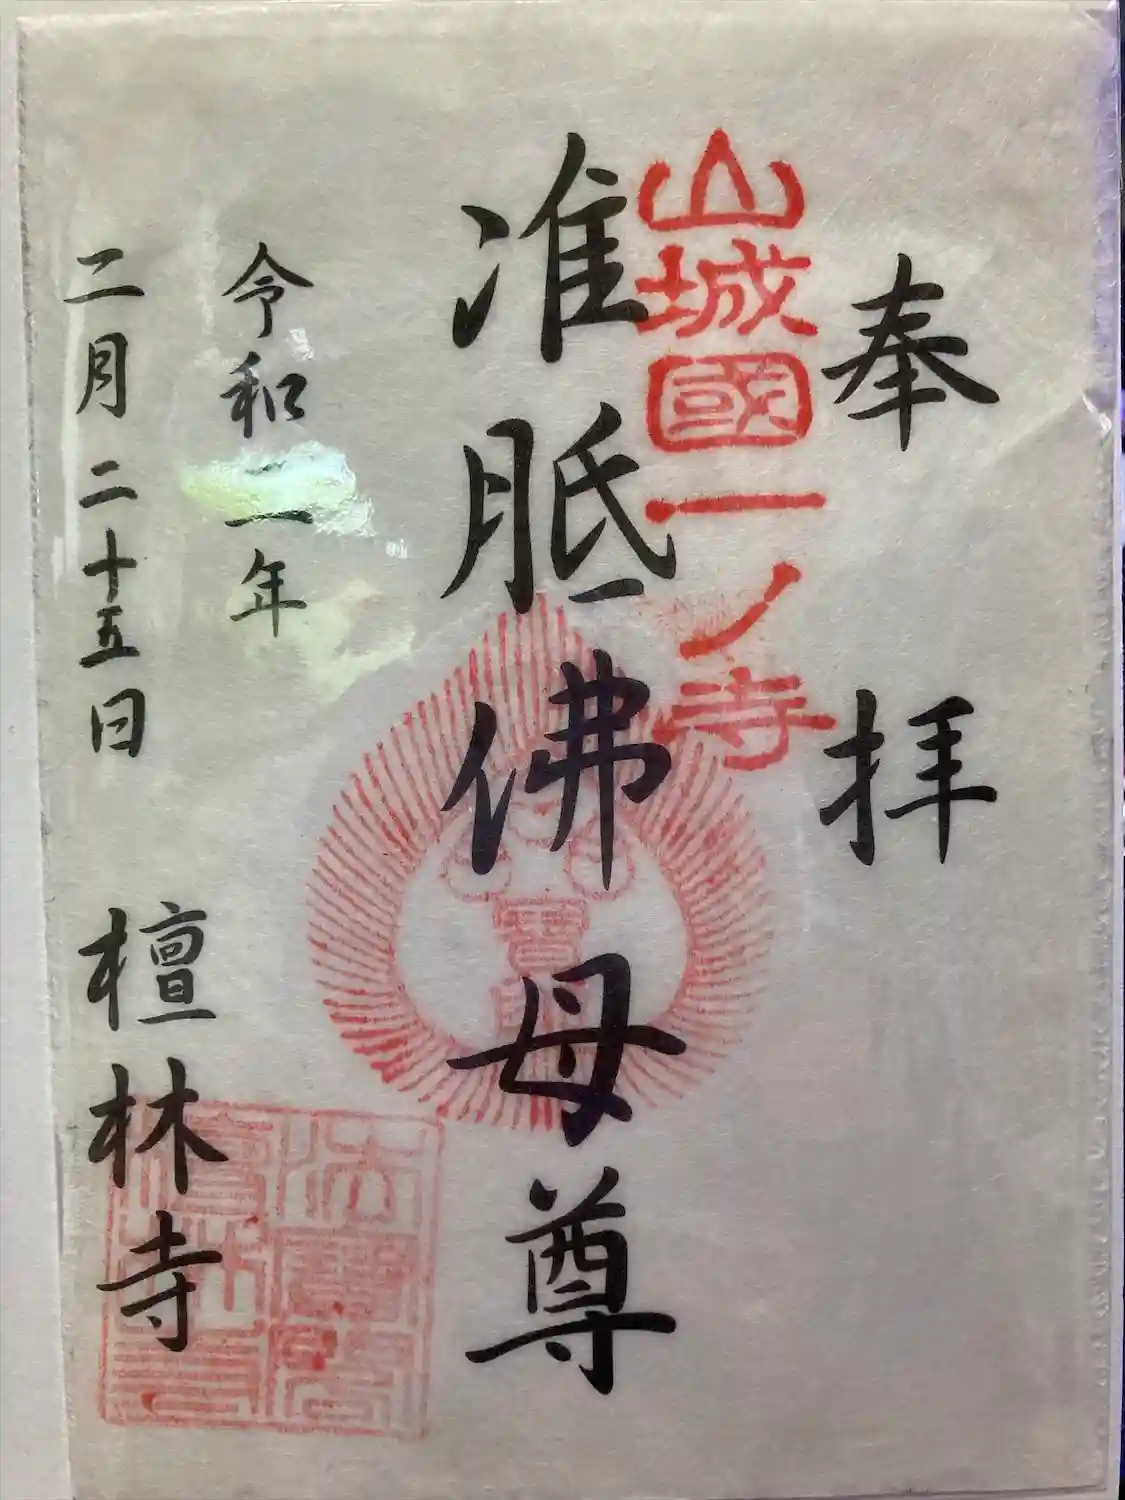 奉拝
山城國一ノ寺
准胝佛母尊
令和二年
二月二十五日
檀林寺